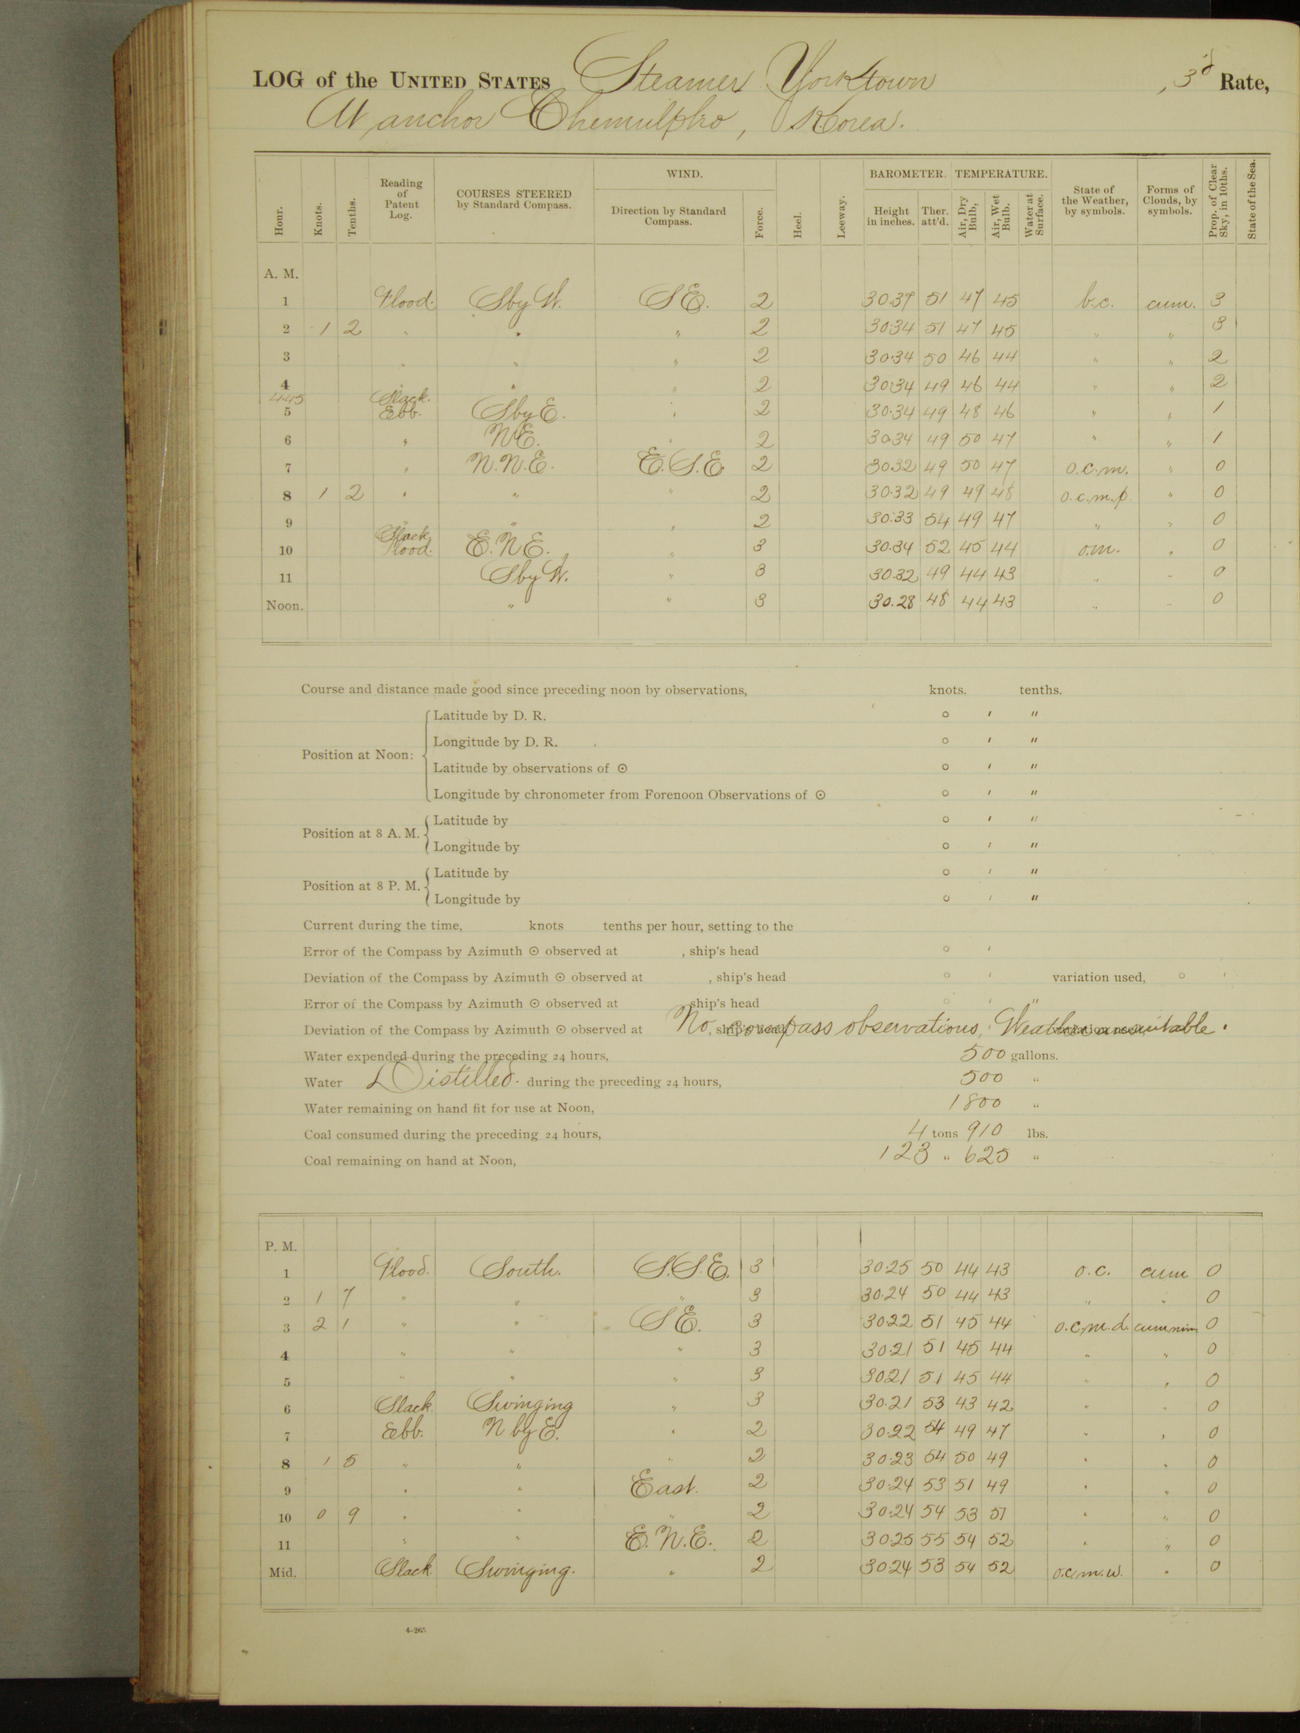 LOG of the UNITED STATES Steamer Yorktown, 3d Rate,
At anchor Chemulpho, Korea.
Hour. Knots. Tenths. Reading of Patent Log. COURSES STEERED by Standard Compass. WIND. Direction by Standard Compass. Force. Heel. Leeway. BAROMETER. Height in inches. Ther. att'd. TEMPERATURE. Air, Dry Bulb, Air, Wet Bulb. Water at Surface. State of the Weather, by symbols. Forms of Clouds, by symbols. Prop. of Clear Sky, in 10ths. State of the Sea.
A. M.
1 Flood. S by W. S E. 2 30.37 51 47 45 b.c. cum. 3
2 1 2 " " " 2 30.34 51 47 45 " " 3
3 " " " 2 30.34 50 46 44 " " 2
4 " " " 2 30.34 49 46 44 " " 2
445 Slack.
5 Ebb. S by E. " 2 30.34 49 48 46 " " 1
6 " N E. " 2 30.34 49 50 47 " " 1
7 " N. N. E. E. S. E. 2 30.32 49 50 47 o.c.m. " 0
8 1 2 " " " 2 30.32 49 49 48 o.c.m.p. " 0
9 " " " 2 30.33 54 49 47 " " 0
Slack
10 Flood. E. N. E. " 3 30.34 52 45 44 o.m. " 0
11 S by W. " 3 30.32 49 44 43 " " 0
Noon. " " 3 30.28 48 44 43 " " 0
Course and distance made good since preceding noon by observations, knots. tenths.
Position at Noon:
Latitude by D. R. ° ′ ″
Longitude by D. R. ° ′ ″
Latitude by observations of ☉ ° ′ ″
Longitude by chronometer from Forenoon Observations of ☉ ° ′ ″
Position at 8 A. M.
Latitude by ° ′ ″
Longitude by ° ′ ″
Position at 8 P. M.
Latitude by ° ′ ″
Longitude by ° ′ ″
Current during the time, knots tenths per hour, setting to the
Error of the Compass by Azimuth ☉ observed at , ship's head ° ′
Deviation of the Compass by Azimuth ☉ observed at , ship's head ° ′ variation used, ° ′
Error of the Compass by Azimuth ☉ observed at ship's head ° ′ ″
Deviation of the Compass by Azimuth ☉ observed at , ship's head No compass observations, Weather unsuitable.
Water expended during the preceding 24 hours, 500 gallons.
Water Distilled. during the preceding 24 hours, 500 "
Water remaining on hand fit for use at Noon, 1800 "
Coal consumed during the preceding 24 hours, 4 tons 910 lbs.
Coal remaining on hand at Noon, 123 " 625 "
P. M.
1 Flood. South. S. S. E. 3 30.25 50 44 43 o.c. cum 0
2 1 7 " " " 3 30.24 50 44 43 " " 0
3 2 1 " " S E. 3 30.22 51 45 44 o.c.m.d. cum nim 0
4 " " " 3 30.21 51 45 44 " " 0
5 " " " 3 30.21 51 45 44 " " 0
6 Slack Swinging " 3 30.21 53 43 42 " " 0
7 Ebb. N by E. " 2 30.22 54 49 47 " " 0
8 1 5 " " " 2 30.23 54 50 49 " " 0
9 " " East. 2 30.24 53 51 49 " " 0
10 0 9 " " " 2 30.24 54 53 51 " " 0
11 " " E. N. E. 2 30.25 55 54 52 " " 0
Mid. Slack Swinging. " 2 30.24 53 54 52 o.c.m.w. " 0
4-265